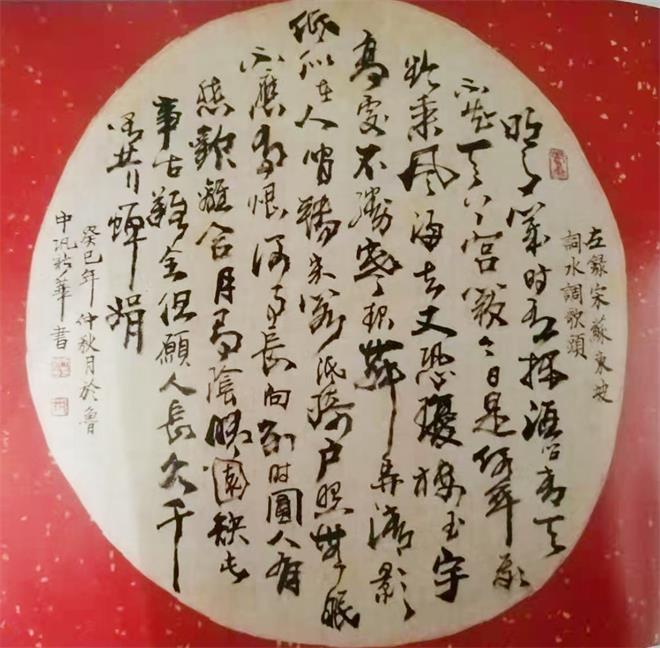 左錄宋蘇東坡
詞水調歌頭
明月幾時有把酒問青天
不知天上宮闕今日是何年我
欲乘風歸去又恐瓊樓玉宇
高處不勝寒起舞弄清影
何似在人間轉朱閣低綺戶照無眠
不應有恨何事長向別時圓人有
悲歡離合月有陰晴圓缺此
事古難全但願人長久千
里共嬋娟
癸巳年仲秋月於魯
中華書